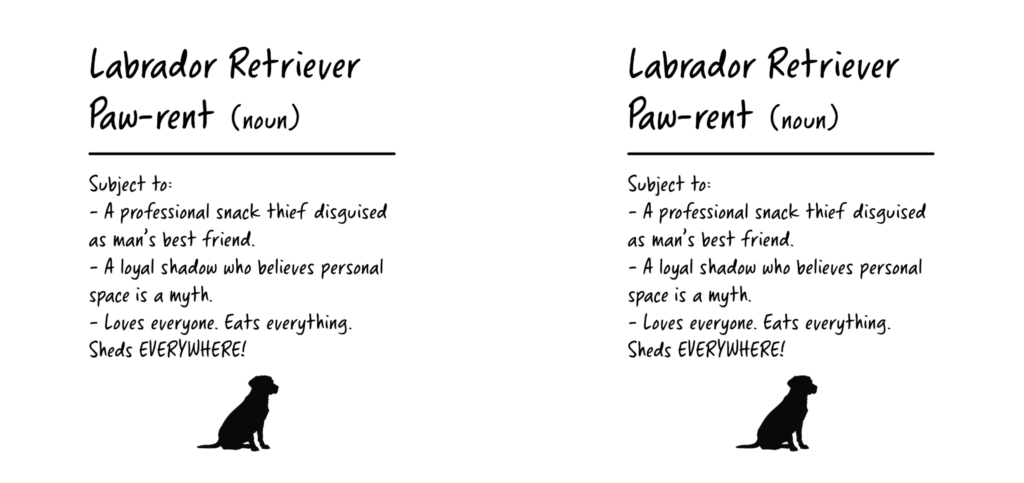 Labrador Retriever
Paw-rent (noun)
Subject to:
- A professional snack thief disguised
as man's best friend.
- A loyal shadow who believes personal
space is a myth.
- Loves everyone. Eats everything.
Sheds EVERYWHERE!
Labrador Retriever
Paw-rent (noun)
Subject to:
- A professional snack thief disguised
as man's best friend.
- A loyal shadow who believes personal
space is a myth.
- Loves everyone. Eats everything.
Sheds EVERYWHERE!